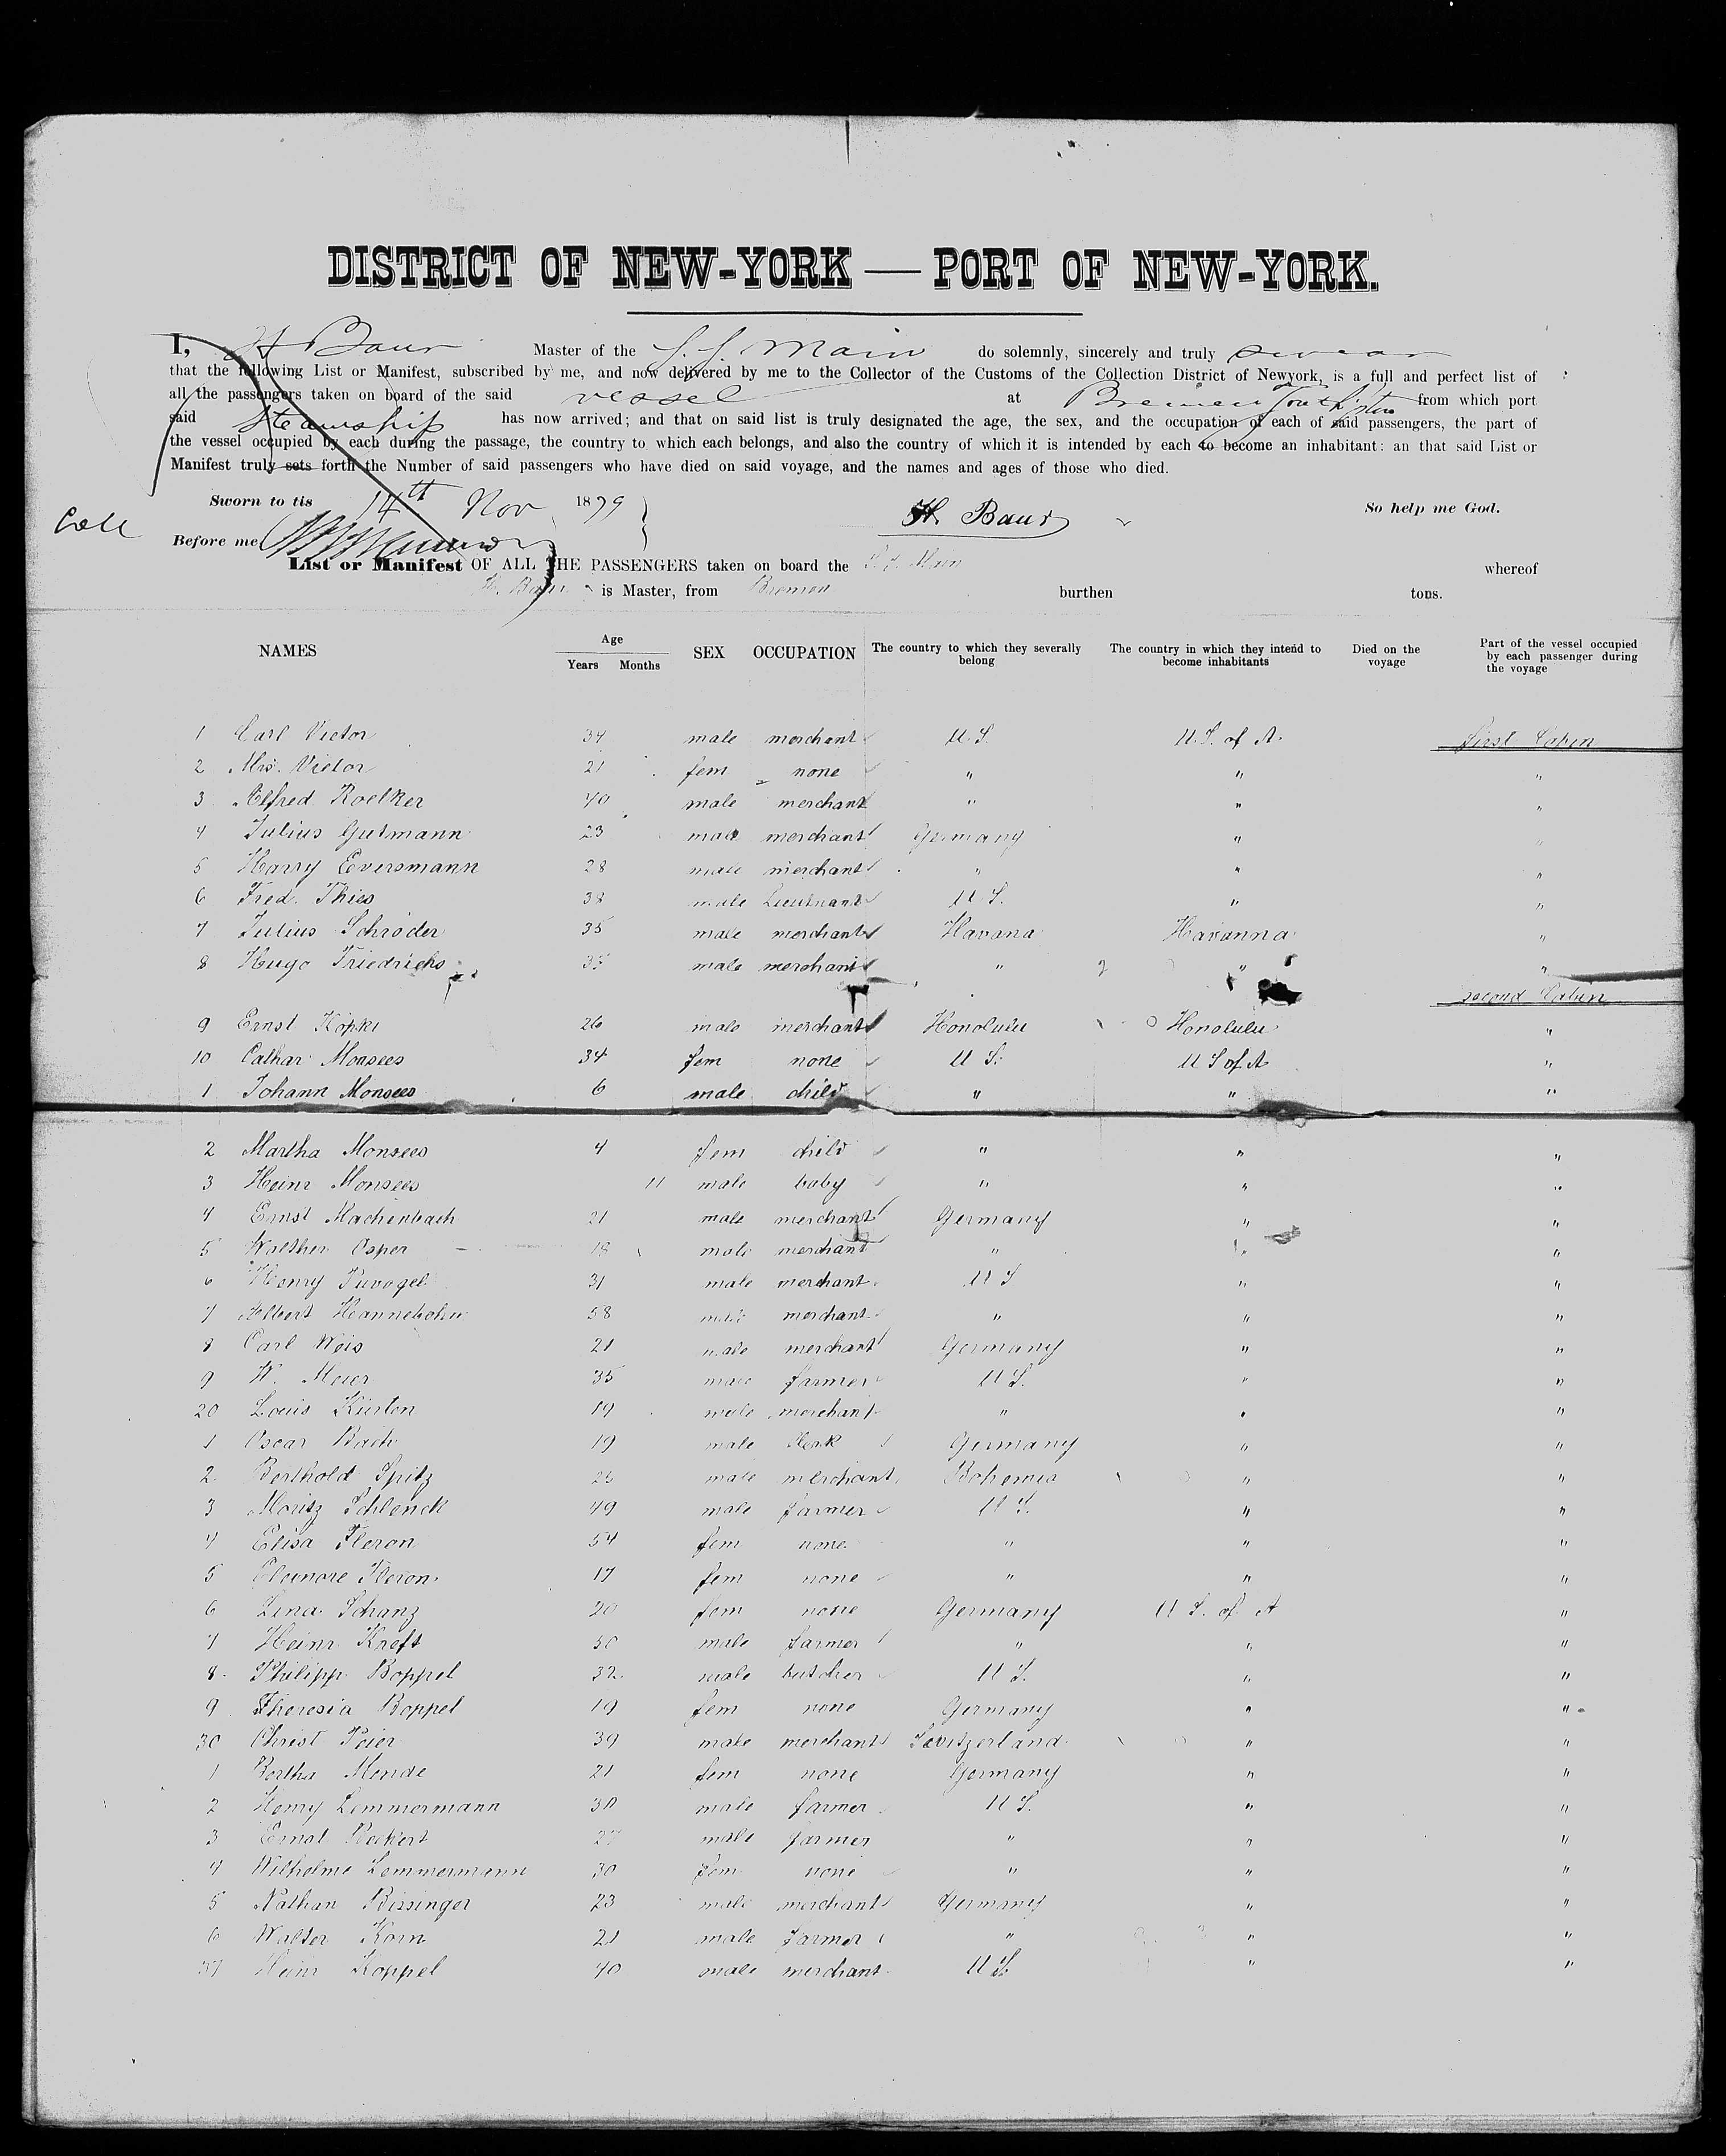 DISTRICT OF NEW-YORK — PORT OF NEW-YORK.
I, H Baur Master of the S. S. Main do solemnly, sincerely and truly swear
that the following List or Manifest, subscribed by me, and now delivered by me to the Collector of the Customs of the Collection District of Newyork, is a full and perfect list of
all the passengers taken on board of the said vessel at Bremen from which port
said Steamship has now arrived; and that on said list is truly designated the age, the sex, and the occupation of each of said passengers, the part of
the vessel occupied by each during the passage, the country to which each belongs, and also the country of which it is intended by each to become an inhabitant: an that said List or
Manifest truly sets forth the Number of said passengers who have died on said voyage, and the names and ages of those who died.
Sworn to tis 14th Nov 1879 H. Baur So help me God.
Before me
List or Manifest OF ALL THE PASSENGERS taken on board the S. S. Main whereof
H. Baur is Master, from Bremen burthen tons.
NAMES Age Years Months SEX OCCUPATION The country to which they severally belong The country in which they intend to become inhabitants Died on the voyage Part of the vessel occupied by each passenger during the voyage
1 Carl Victor 34 male merchant U.S. U.S. of A. first Cabin
2 Mrs. Victor 21 fem none " " "
3 Alfred Roelker 40 male merchant " " "
4 Julius Gutmann 23 male merchant Germany " "
5 Harry Eversmann 28 male merchant " " "
6 Fred. Thies 38 male Lieutnant U S. " "
7 Julius Schröder 35 male merchant Havana Havanna "
8 Hugo Friedrichs male merchant " " "
second Cabin
9 Ernst Köpke 26 male merchant Honolulu Honolulu "
10 Cathar Monsees 34 fem none U S. U S of A "
1 Johann Monsees 6 male child " " "
2 Martha Monsees 4 fem child " " "
3 Heinr Monsees 11 male baby " " "
4 Ernst Machenbach 21 male merchant Germany " "
5 Walther Osper 18 male merchant " " "
6 Henry Puvogel 31 male merchant U S " "
7 Albert 58 male merchant " " "
8 Carl Weis 21 male merchant Germany " "
9 W. Meier 35 male farmer U S. " "
20 Louis Kürten 19 male merchant " " "
1 Oscar Bach 19 male Clerk Germany " "
2 Berthold Spitz male merchant Bohemia " "
3 Moritz Schlenck 49 male farmer U S. " "
4 Elisa Fleron 54 fem none " " "
5 Eleonore Fleron 17 fem none " " "
6 Lina Schanz 20 fem none Germany U S. of A "
7 Heinr Kreft 50 male farmer " " "
8 Philipp Boppel 32 male butcher U S. " "
9 Theresia Boppel 19 fem none Germany " "
30 Christ Peier 39 male merchant Switzerland " "
1 Bertha Mende 21 fem none Germany " "
2 Henry Lemmermann 30 male farmer U S. " "
3 Ernst Reckert 27 male farmer " " "
4 Wilhelme Lemmermann 30 fem none " " "
5 Nathan Bissinger 23 male merchant Germany " "
6 Walter Korn 21 male farmer " " "
37 Heinr Koppel 40 male merchant U S. " "